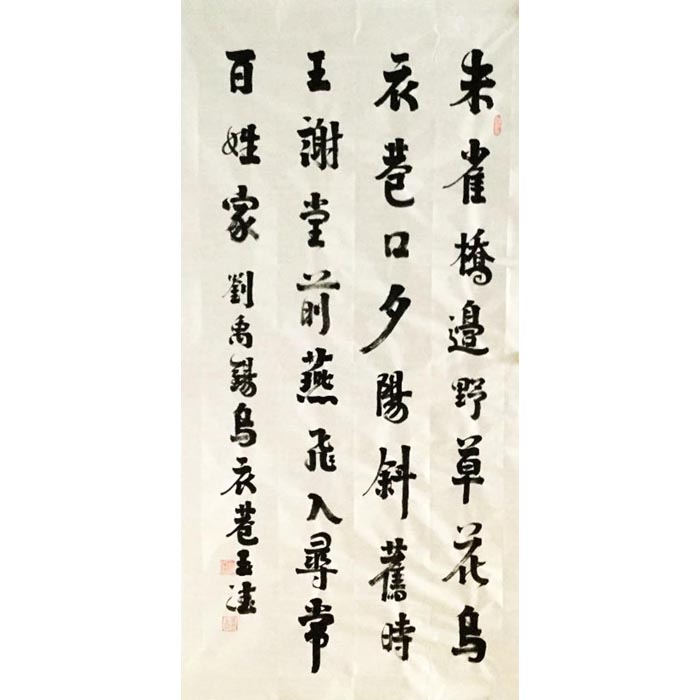 朱雀橋邊野草花烏
衣巷口夕陽斜舊時
王謝堂前燕飛入尋常
百姓家 劉禹錫烏衣巷玉